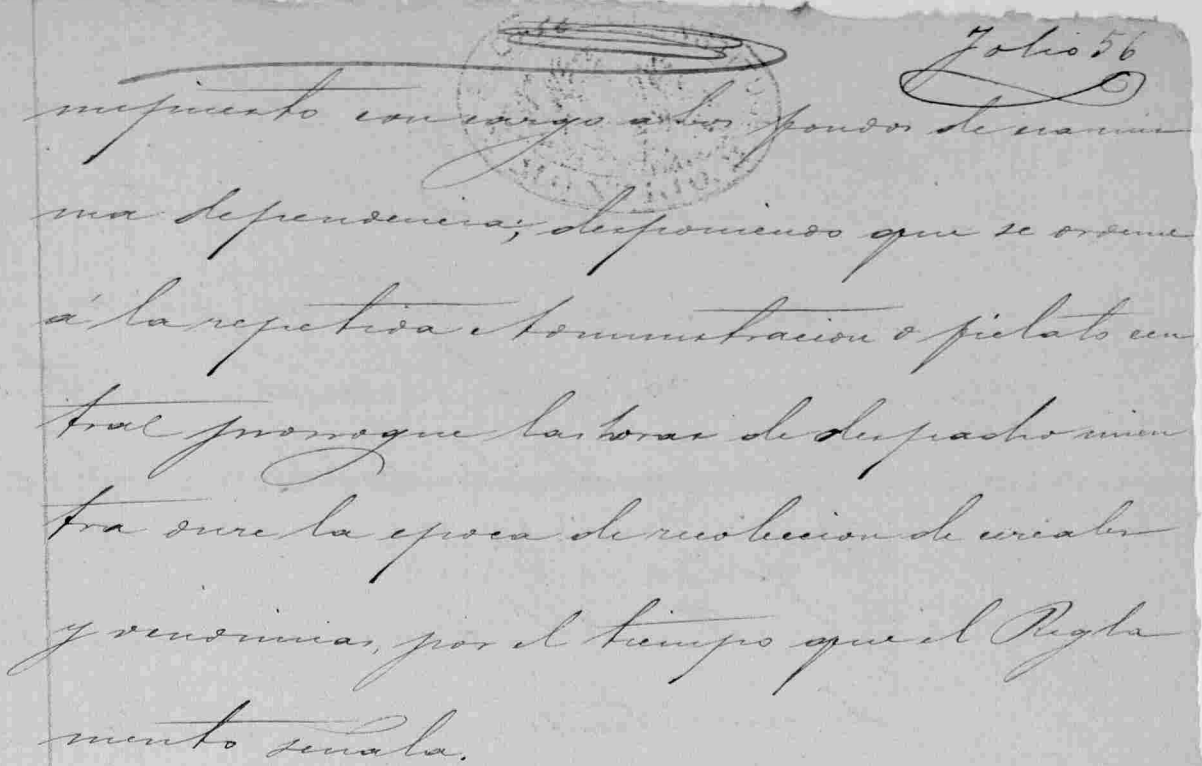 Folio 56
mupuesto con cargo a los fondos de la mis
ma dependencia; disponiendo que se ordene
á la repetida Administracion o fielato cen
tral prorrogue las horas de despacho mien
tra dure la epoca de recoleccion de cereales
y vendimias, por el tiempo que el Regla
mento señala.